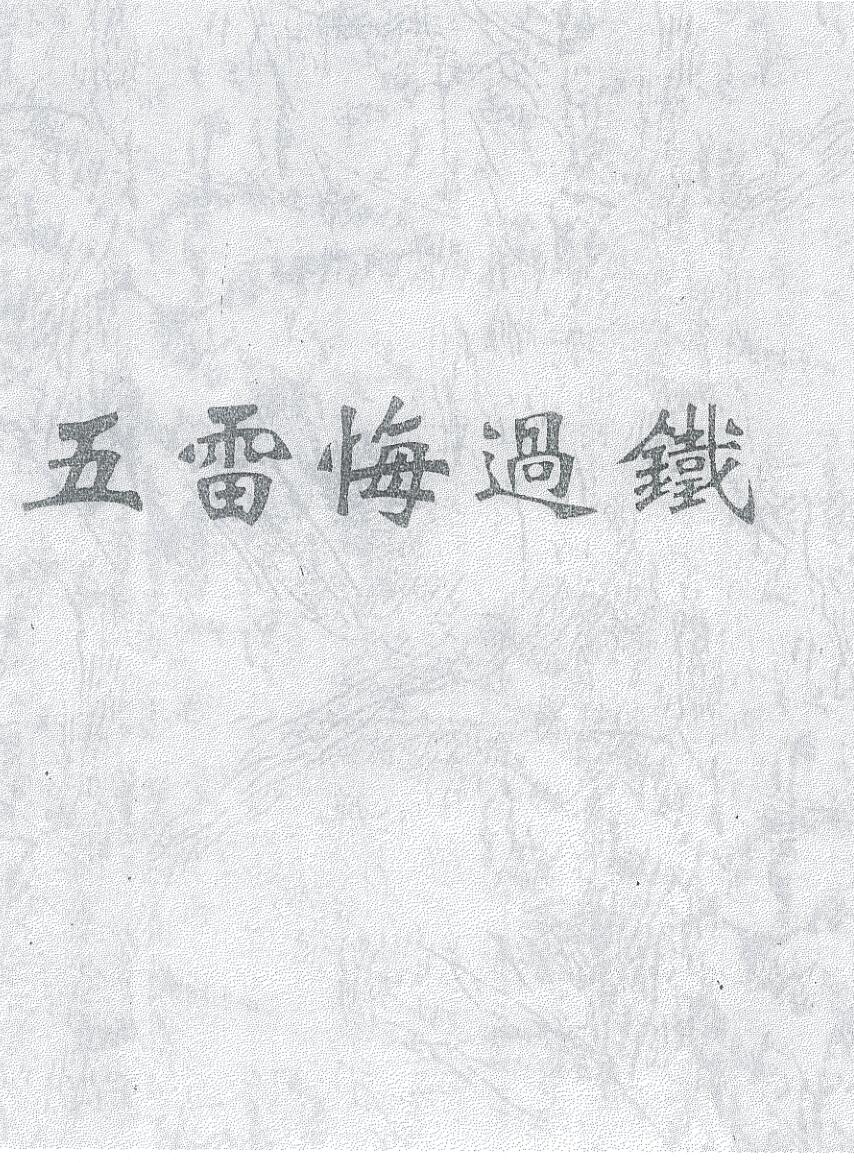 五雷悔過鐵